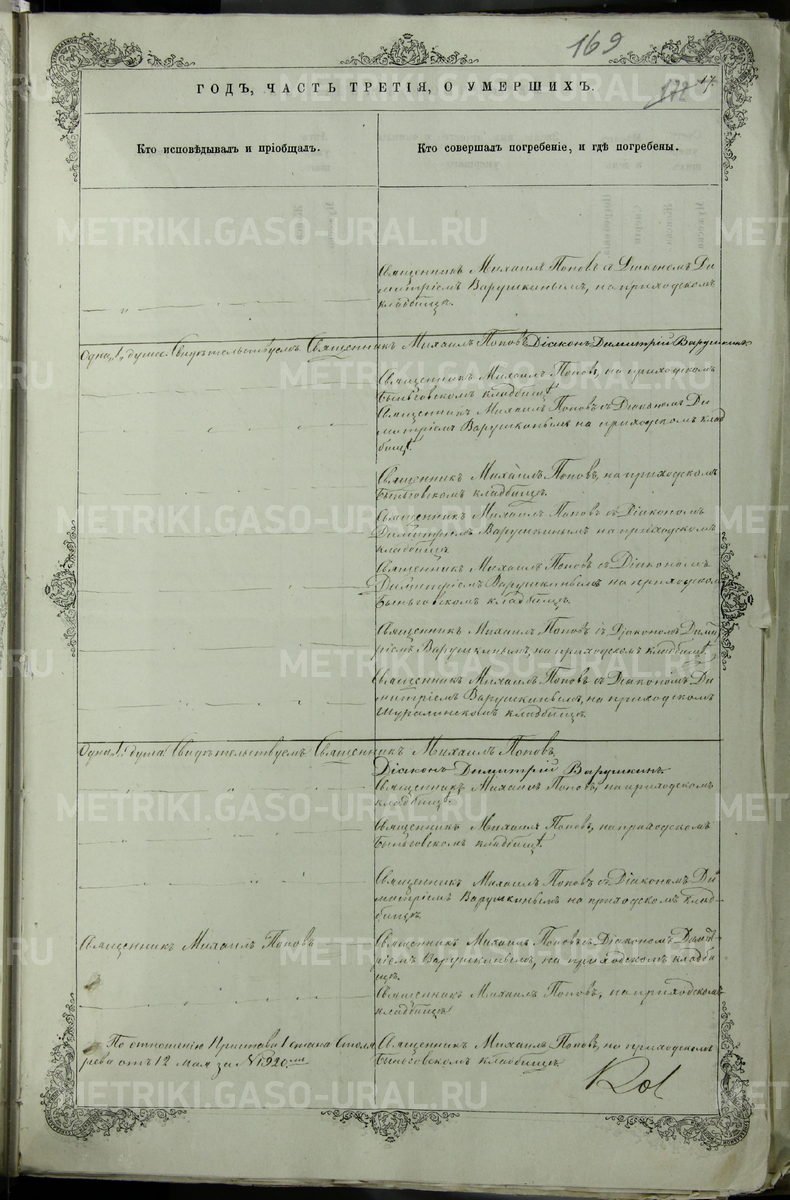 169
172
17.
ГОДЪ, ЧАСТЬ ТРЕТІЯ, О УМЕРШИХЪ.
Кто исповѣдывалъ и пріобщалъ.
Кто совершалъ погребеніе, и гдѣ погребены.
METRIKI.GASO-URAL.RU
Священникъ Михаилъ Поповъ съ Діакономъ Ди
митріемъ Варушкинымъ, на приходскомъ
кладбищѣ.
Одна, 1, душа. Свидѣтельствуемъ Священникъ Михаилъ Поповъ Діаконъ Димитрій Варушкинъ
Священникъ Михаилъ Поповъ, на приходскомъ
Быньговскомъ кладбищѣ
Священникъ Михаилъ Поповъ съ Діакономъ Ди
митріемъ Варушкинымъ на приходскомъ клад
бищѣ.
Священникъ Михаилъ Поповъ, на приходскомъ
Быньговскомъ кладбищѣ.
Священникъ Михаилъ Поповъ съ Діакономъ
Димитріемъ Варушкинымъ на приходскомъ
кладбищѣ
Священникъ Михаилъ Поповъ съ Діакономъ
Димитріемъ Варушкинымъ на приходскомъ
Быньговскомъ кладбищѣ.
Священникъ Михаилъ Поповъ съ Діакономъ Димит
ріемъ Варушкинымъ, на приходскомъ кладбищѣ.
Священникъ Михаилъ Поповъ съ Діакономъ Ди
митріемъ Варушкинымъ, на приходскомъ
Шуралинскомъ кладбищѣ.
Одна, 1, душа. Свидѣтельствуемъ Священникъ Михаилъ Поповъ,
Діаконъ Димитрій Варушкинъ
Священникъ Михаилъ Поповъ, на приходскомъ
кладбищѣ.
Священникъ Михаилъ Поповъ, на приходскомъ
Быньговскомъ кладбищѣ.
Священникъ Михаилъ Поповъ съ Діакономъ Ди
митріемъ Варушкинымъ на приходскомъ клад-
бищѣ
Священникъ Михаилъ Поповъ
Священникъ Михаилъ Поповъ съ Діакономъ Димит
ріемъ Варушкинымъ, на приходскомъ кладби
щѣ.
Священникъ Михаилъ Поповъ, на приходскомъ
кладбищѣ
По отношенію Пристава 1 стана Столя
рова отъ 12 мая за №1920.
Священникъ Михаилъ Поповъ, на приходскомъ
Быньговскомъ кладбищѣ